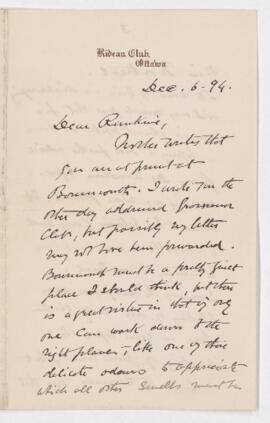 Rideau Club,
Ottawa
Dec. 6-94.
Dear Rankine,
writes that
you are at present at
Bournemouth. I wrote you the
other day addressed Grosvenor
Club, but possibly my letter
may not have been forwarded.
Bournemouth must be a pretty quiet
place I should think, but there
is a great in it if only
one can work down to the
right plane; like one of those
delicate odours to appreciate
which all other smells must be